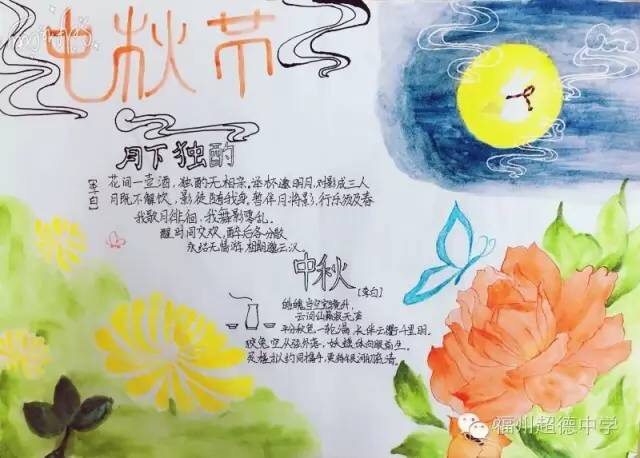 中秋节
月下独酌
[李白]
花间一壶酒,独酌无相亲.举杯邀明月,对影成三人
月既不解饮,影徒随我身.暂伴月将影,行乐须及春
我歌月徘徊,我舞影零乱.
醒时同交欢,醉后各分散
永结无情游,相期邈云汉
中秋
[李白]
皓魄当空宝镜升,
云间仙籁寂无声
平分秋色一轮满,长伴云衢千里明.
狡兔空从弦外落,妖蟆休向眼前生.
灵槎拟约同携手,更待银河彻底清.
福州超德中学